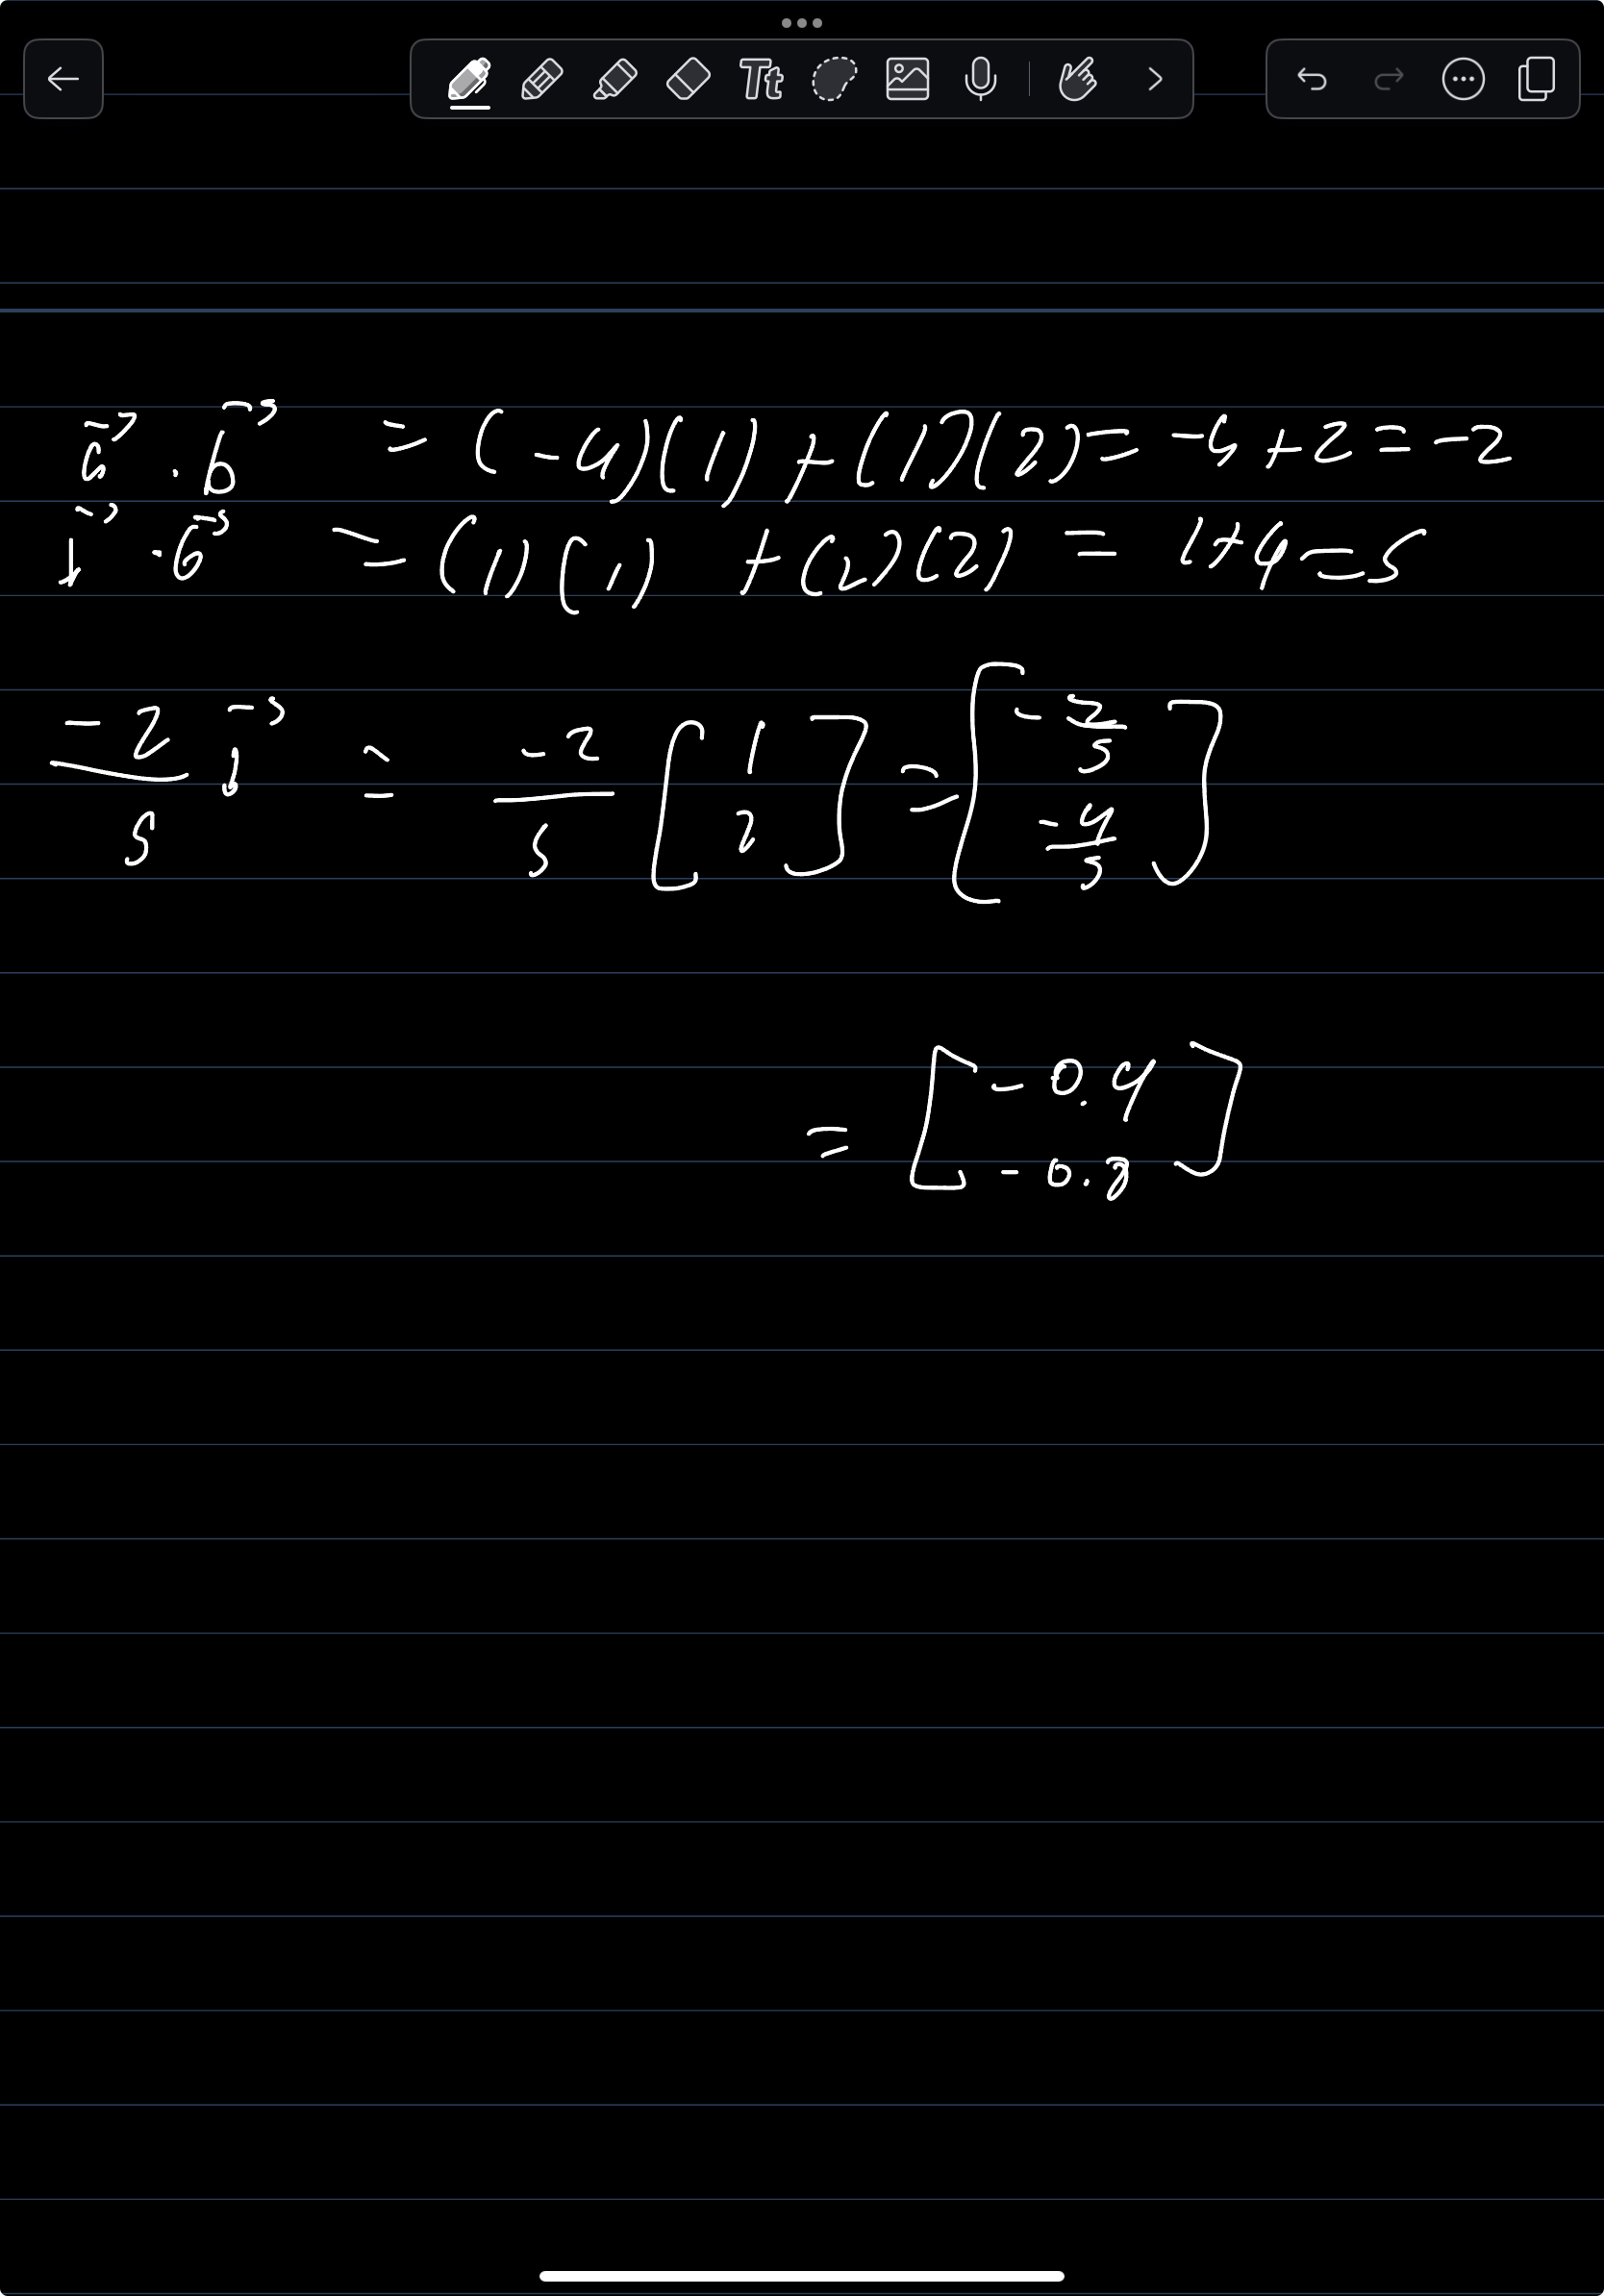 Tt
a⃗ · b⃗ = (-4)(1) + (1)(2) = -4 + 2 = -2
b⃗ · b⃗ = (1)(1) + (2)(2) = 1 + 4 = 5
-2/5 b⃗ = -2/5 [1 2] = [-2/5 -4/5]
= [-0.4 -0.8]